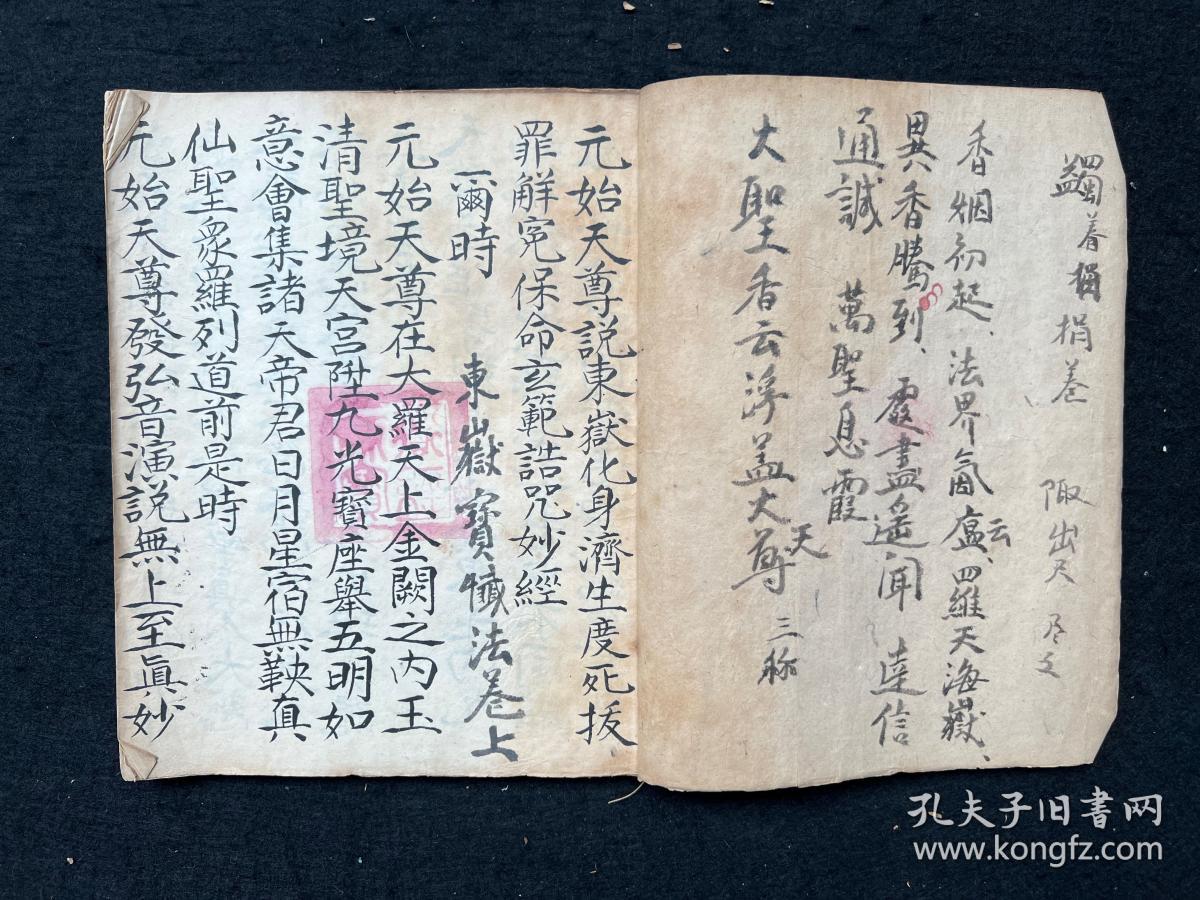 蠲 捐 捐卷 陬出尺 尽文
香烟初起、法界氤盧、四羅天海嶽、
云
異香騰到、霞盡遥闻 達信
通誠 萬聖息霞
大聖香云浮盖大尊 三称
天
元始天尊説東嶽化身濟生度死拔
罪解寃保命玄範誥咒妙經
東嶽寳懺法卷上
爾時
元始天尊在大羅天上金闕之内玉
清聖境天宫陞九光寶座舉五明如
意會集諸天帝君日月星宿無鞅真
仙聖眾羅列道前是時
元始天尊發弘音演説無上至真妙
孔夫子旧書网
www.kongfz.com